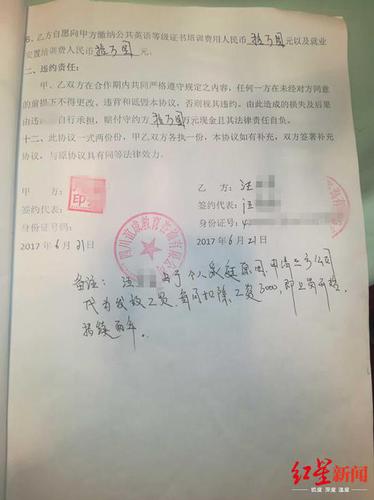 五、乙方自愿向甲方缴纳公共英语等级证书培训费用人民币 拾万圆 元以及就业
安置培训费人民币 拾万圆 元。
二、违约责任：
甲、乙双方在合作期内共同严格遵守规定之内容，任何一方在未经对方同意
的前提下不得更改、违背和诋毁本协议，否则视其违约，由此造成的损失及后果
由违 自行承担，赔付守约方 万元现金且其法律责任自负。
十二、此协议一式两份份，甲乙双方各执一份，本协议如有补充，双方签署补充
协议，与原协议具有同等法律效力。
甲 方： 乙 方：汪
签约代表： 签约代表：汪
身份证号码： 身份证号：
2017年6月21日 2017年6月21日
印
备注：汪 由于个人家庭原因，申请 公司
代为 发工资，每月 工资3000，即
两年。
红星新闻
锐度 深度 温度